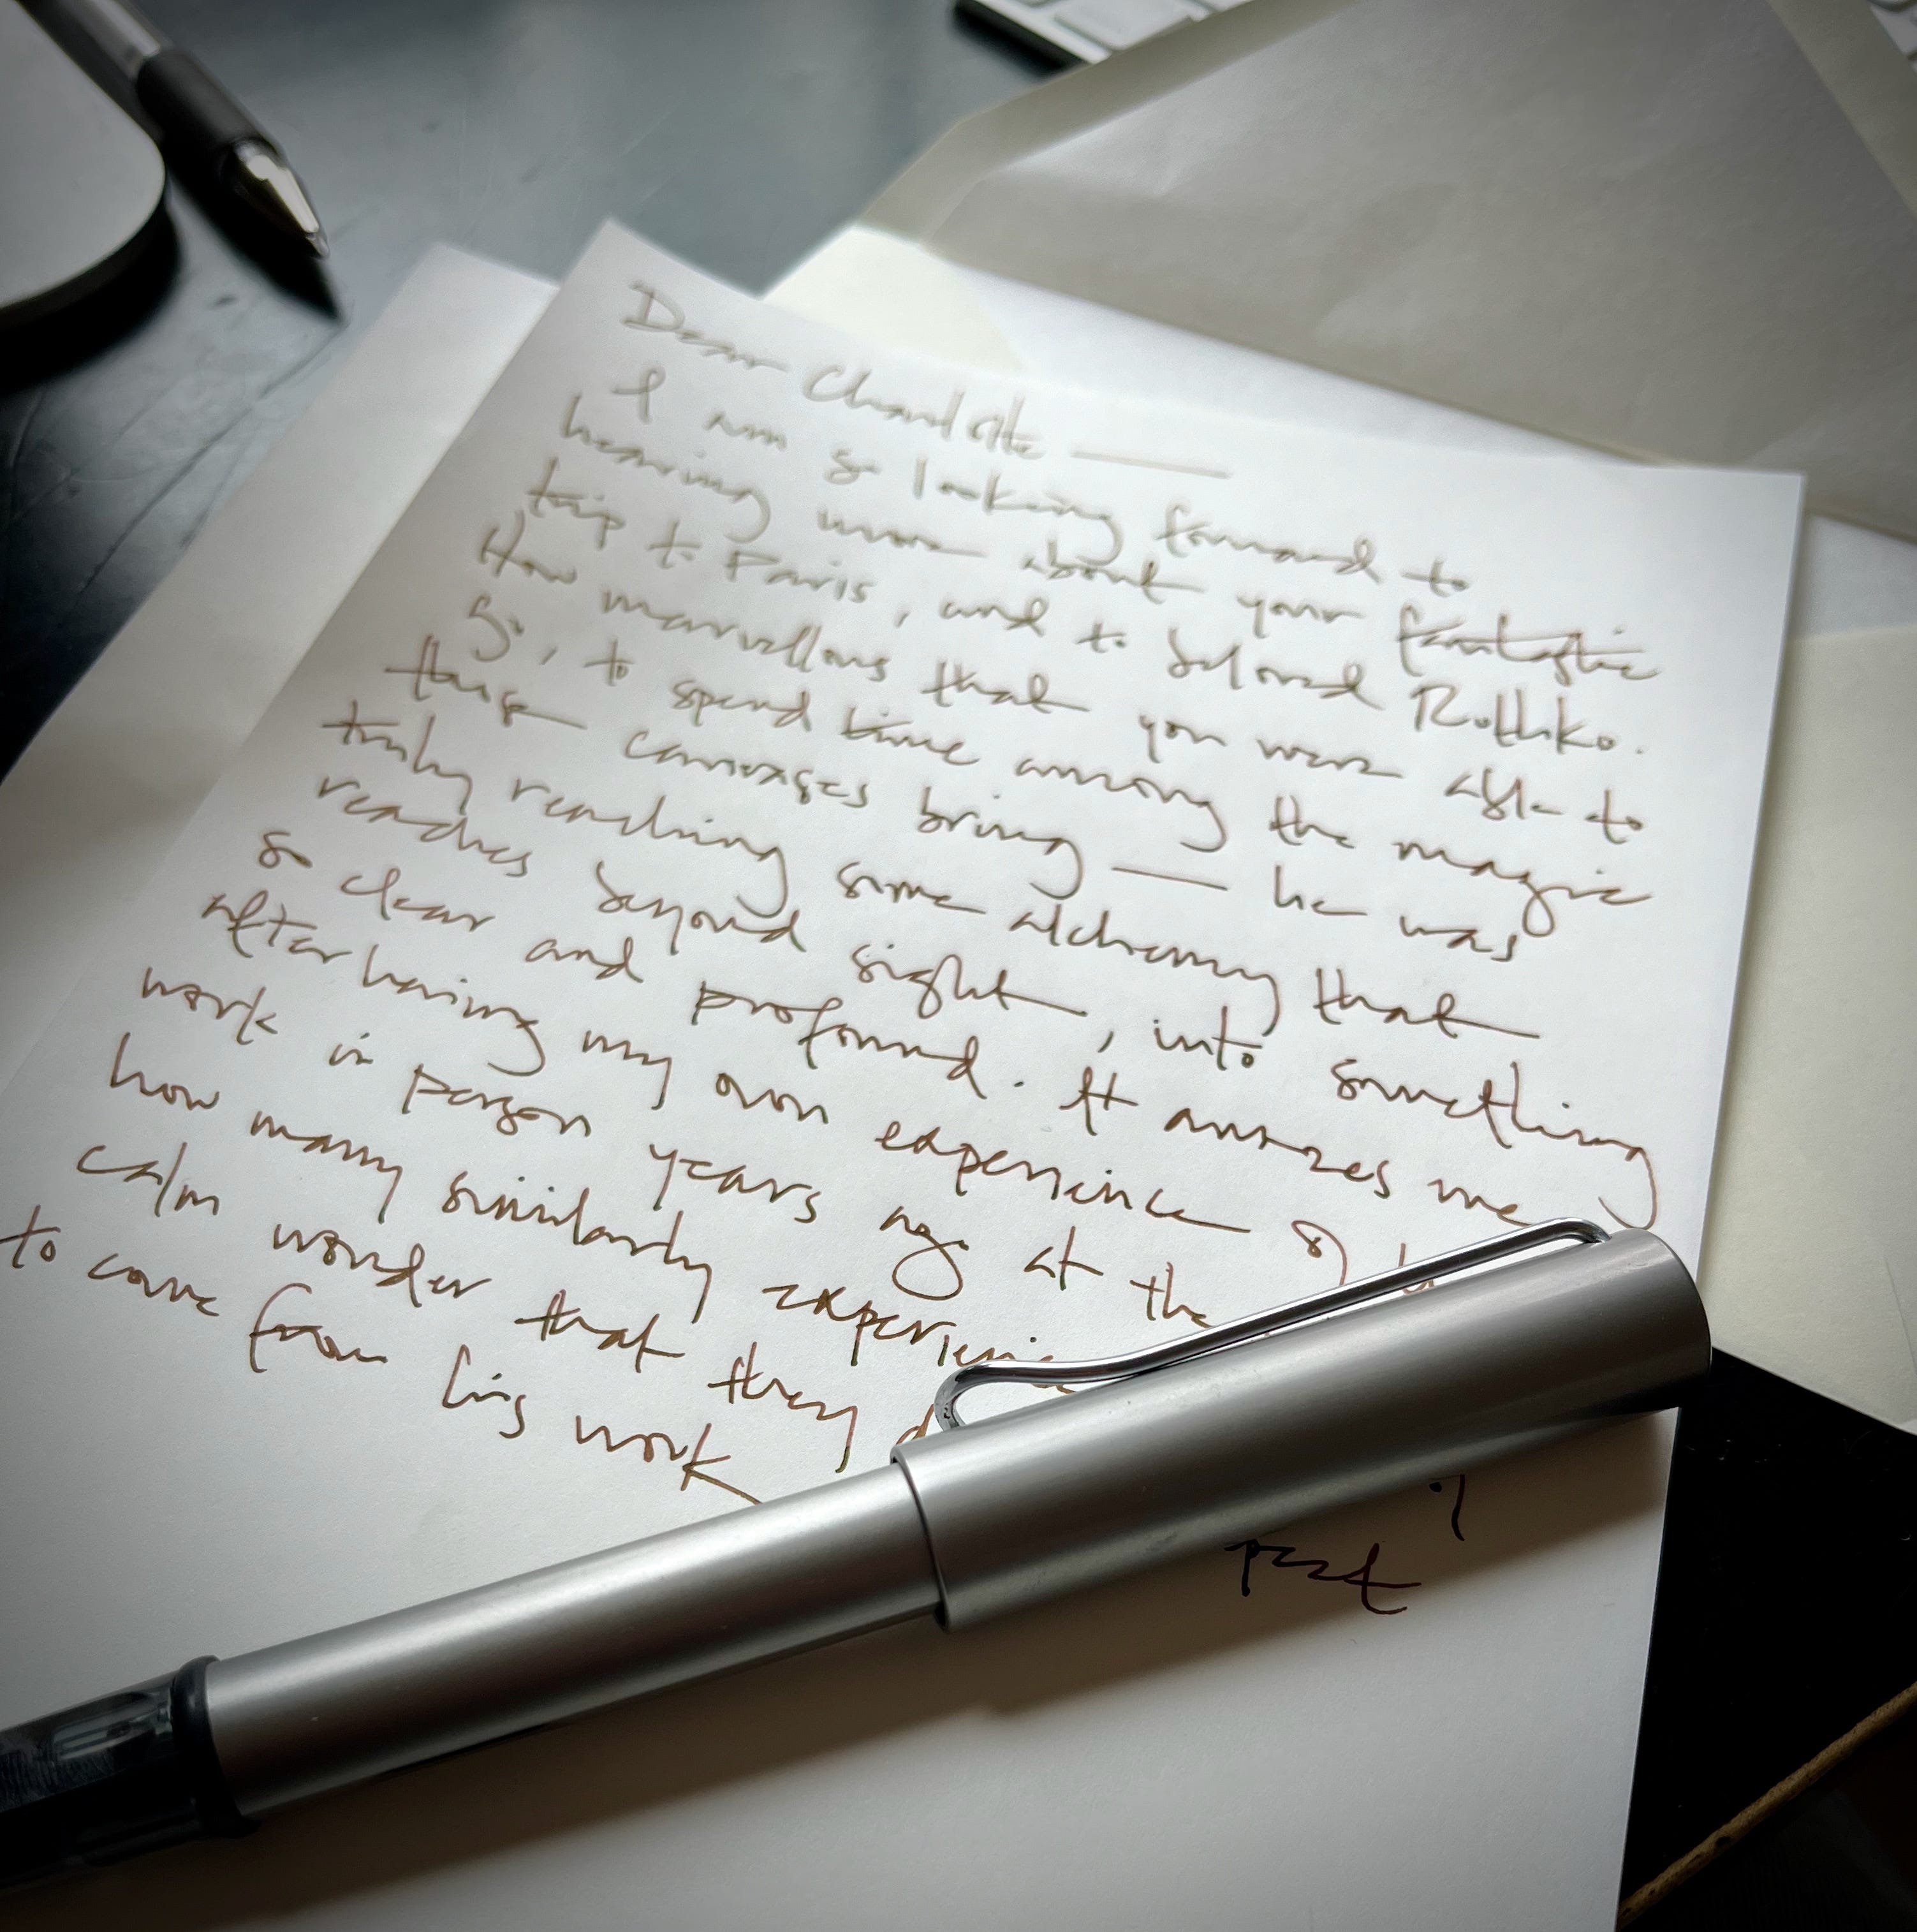 Dear Charlotte —
I am so looking forward to
hearing more about your fantastic
trip to Paris, and to beloved Rothko.
How marvellous that you were able to
go, to spend time among the magic
those canvases bring — he was
truly reaching some alchemy that
reaches beyond sight, into something
so clear and profound. It amazes me
after having my own experience of
work in person years ago at the
how many similarly
calm wonder that they
to come from his work
past